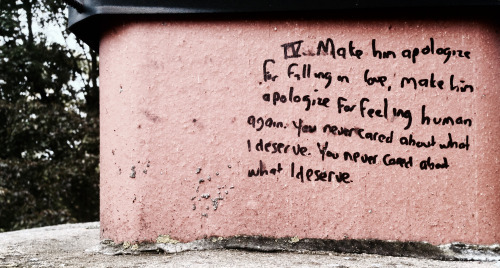 IV. Make him apologize
for falling in love, make him
apologize for feeling human
again. You never cared about what
I deserve. You never cared about
what I deserve.